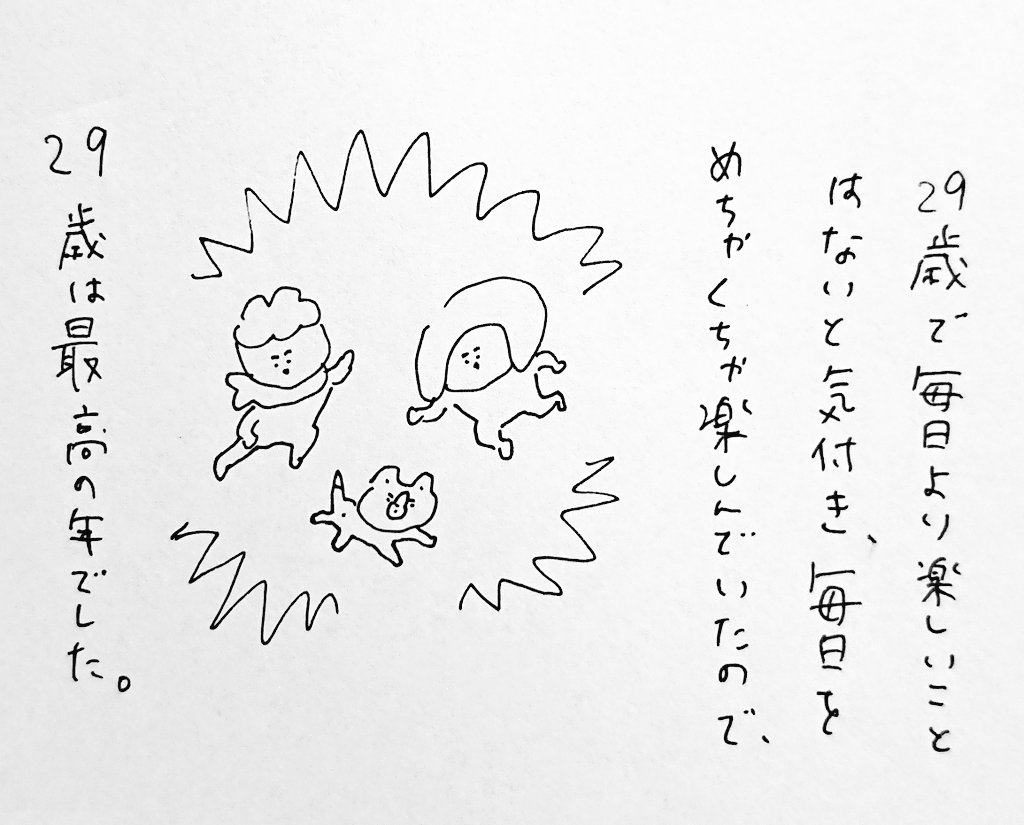 29歳で毎日より楽しいこと
はないと気付き、毎日を
めちゃくちゃ楽しんでいたので、
29歳は最高の年でした。